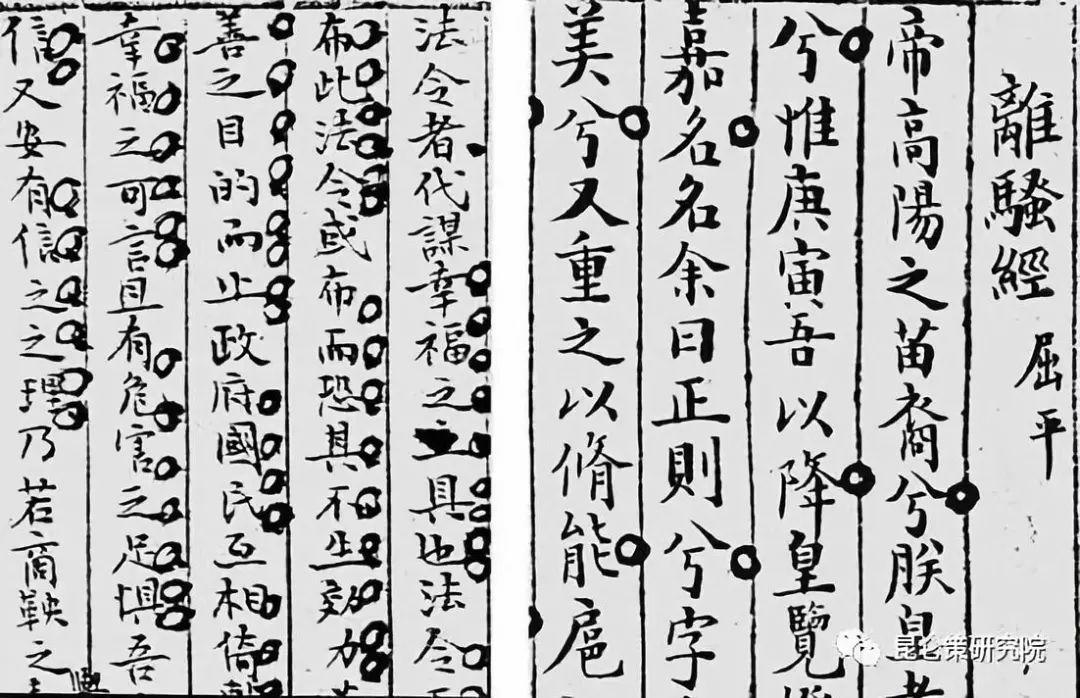 離騷經 屈平
帝高陽之苗裔兮朕皇
兮惟庚寅吾以降皇覽
嘉名名余曰正則兮字
美兮又重之以脩能扈
法令者代謀幸福之具也法令
布此法令或布而恐其不生效力
善之目的而止政府國民互相倚
幸福之可言且有危害之足惧吾
信又安有信之之理乃若商鞅之
昆仑策研究院